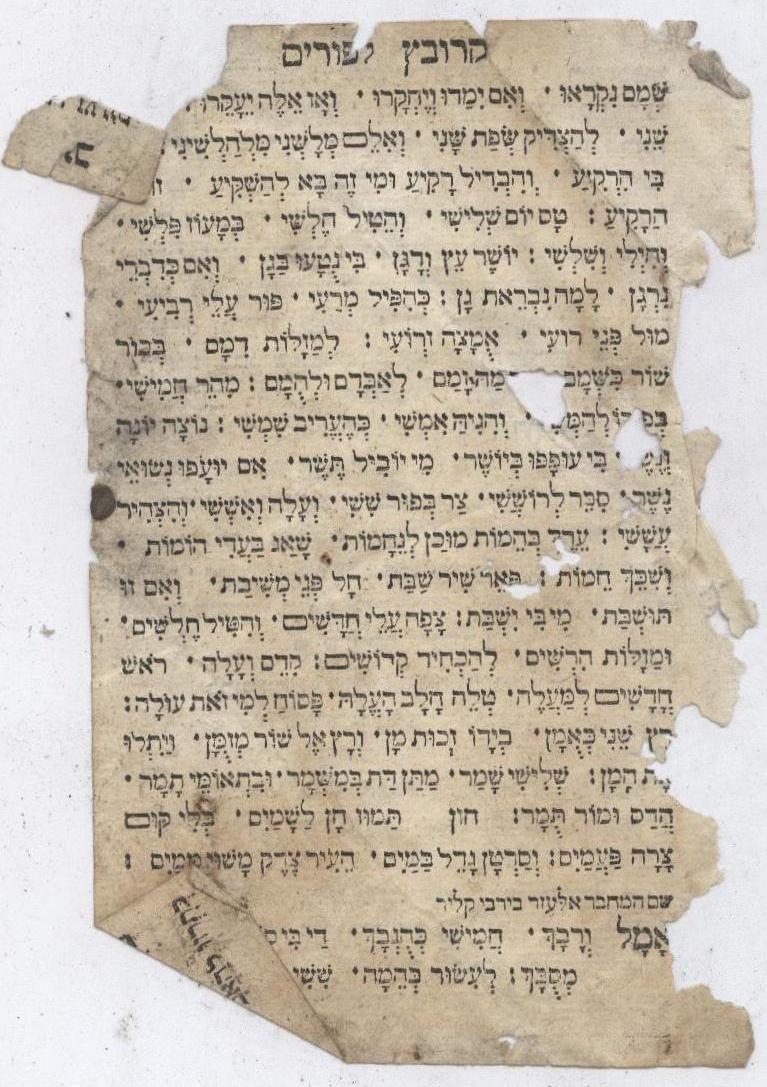 קרובץ לפורים
שְׁמָם נִקְרָאוּ · וְאִם יִמַּדּוּ וְיֵחָקְרוּ · וְאָז אֵלֶּה יֵעָקֵרוּ
שֵׁנִי · לְהַצְדִּיק שְׂפַת שָׁנִי · וְאִלֵּם מְלָשְׁנִי מִלְהַלְשִׁינִי
כִּי הִרְקִיעַ · וְהִבְדִּיל רָקִיעַ וּמִי זֶה בָּא לְהַשְׁקִיעַ ·
הַרָקִיעַ : טָס יוֹם שְׁלִישִׁי · וְהֵטִיל חֶלְשִׁי · בְּמָעוֹז פִּלְשִׁי ·
וְחֵילִי וְשִׁלְשִׁי : יוֹשֶׁר עֵץ וְדָגָן · כִּי נְטָעוֹ בַּגָּן · וְאִם כְּדִבְרֵי
נִרְגָּן · לָמָה נִבְרֵאת גָּן : כְּהִפִּיל מְרֵעִי · פּוּר עָלַי רְבִיעִי ·
מוּל פְּנֵי רוֹעִי · אֻמְּצָה זְרוֹעִי : לְמַזָּלוֹת דִּמָּם · בְּכוֹר
שׁוֹר מַה זָּמַם · לְאַבְּדָם וּלְהֻמָּם : מִהֵר חֲמִישִׁי ·
וְהִגִּיהַּ אִמְשִׁי · כְּהֶעֱרִיב שִׁמְשִׁי : נוֹצָה יוֹנָה
כִּי עוּפָּפוּ בְּיוֹשֶׁר · מִי יוֹבִיל תֶּשֶׁר · אִם יוּעָפוּ נְשׂוּאֵי
נֶשֶׁר · סִבֵּר לְרוֹשְׁשִׁי · צַר בְּפוּר שִׁשִּׁי · וְעָלָה וְאִשְּׁשִׁי · וְהִצְהִיר
עֲשָׁשִׁי : עֵרֶךְ בְּהֵמוֹת מוּכָן לְנֶחָמוֹת · שָׁאַג בַּעֲדִי הוֹמוֹת ·
וְשִׁכֵּךְ חֵמוֹת : פֵּאֵר שִׁיר שַׁבָּת · חָל פְּנֵי מְשִׁיבַת · וְאִם זוּ
תּוּשְׁבַּת · מִי בִּי יִשְׁבַּת : צָפָה עֲלֵי חֳדָשִׁים · וְהִטִּיל חֲלָשִׁים ·
וּמַזָּלוֹת הִרְשִׁים · לְהַכְחִיד קְדוֹשִׁים : קִדֵּם וְעָלָה · רֹאשׁ
חֳדָשִׁים לְמַעְלָה · טָלֶה חָלָב הָעֳלָה · פָּסוֹחַ לְמִי זֹאת עוֹלָה :
רָץ שֵׁנִי כְּאֻמָּן · בְּיָדוֹ זְכוּת מָן · וְרָץ אֶל שׁוֹר מְזֻמָּן · וְיִתְלוּ
אֶת הָמָן : שְׁלִישִׁי שָׁמַר · מַתַּן דַּת בְּמִשְׁמָר · וּבִתְאוֹמֵי תָמָר ·
הֲדַס וּמוֹר תֻּמָּר : חוֹן תַּמּוּז חָן לַשָּׁמַיִם · בְּלִי קוּם
צָרָה פַּעֲמַיִם : וְסַרְטָן גָּדֵל בַּמַּיִם · הֵעִיר צֶדֶק מָשׁוּי מִמַּיִם :
שם המחבר אלעזר בירבי קליר
אָמַל וְרָבָךְ · חֲמִישִׁי כְּהֻנְבָּךְ ·
מְסֻבָּךְ : לְעִשּׂוּר בְּהֵמָה · שִׁשִּׁי